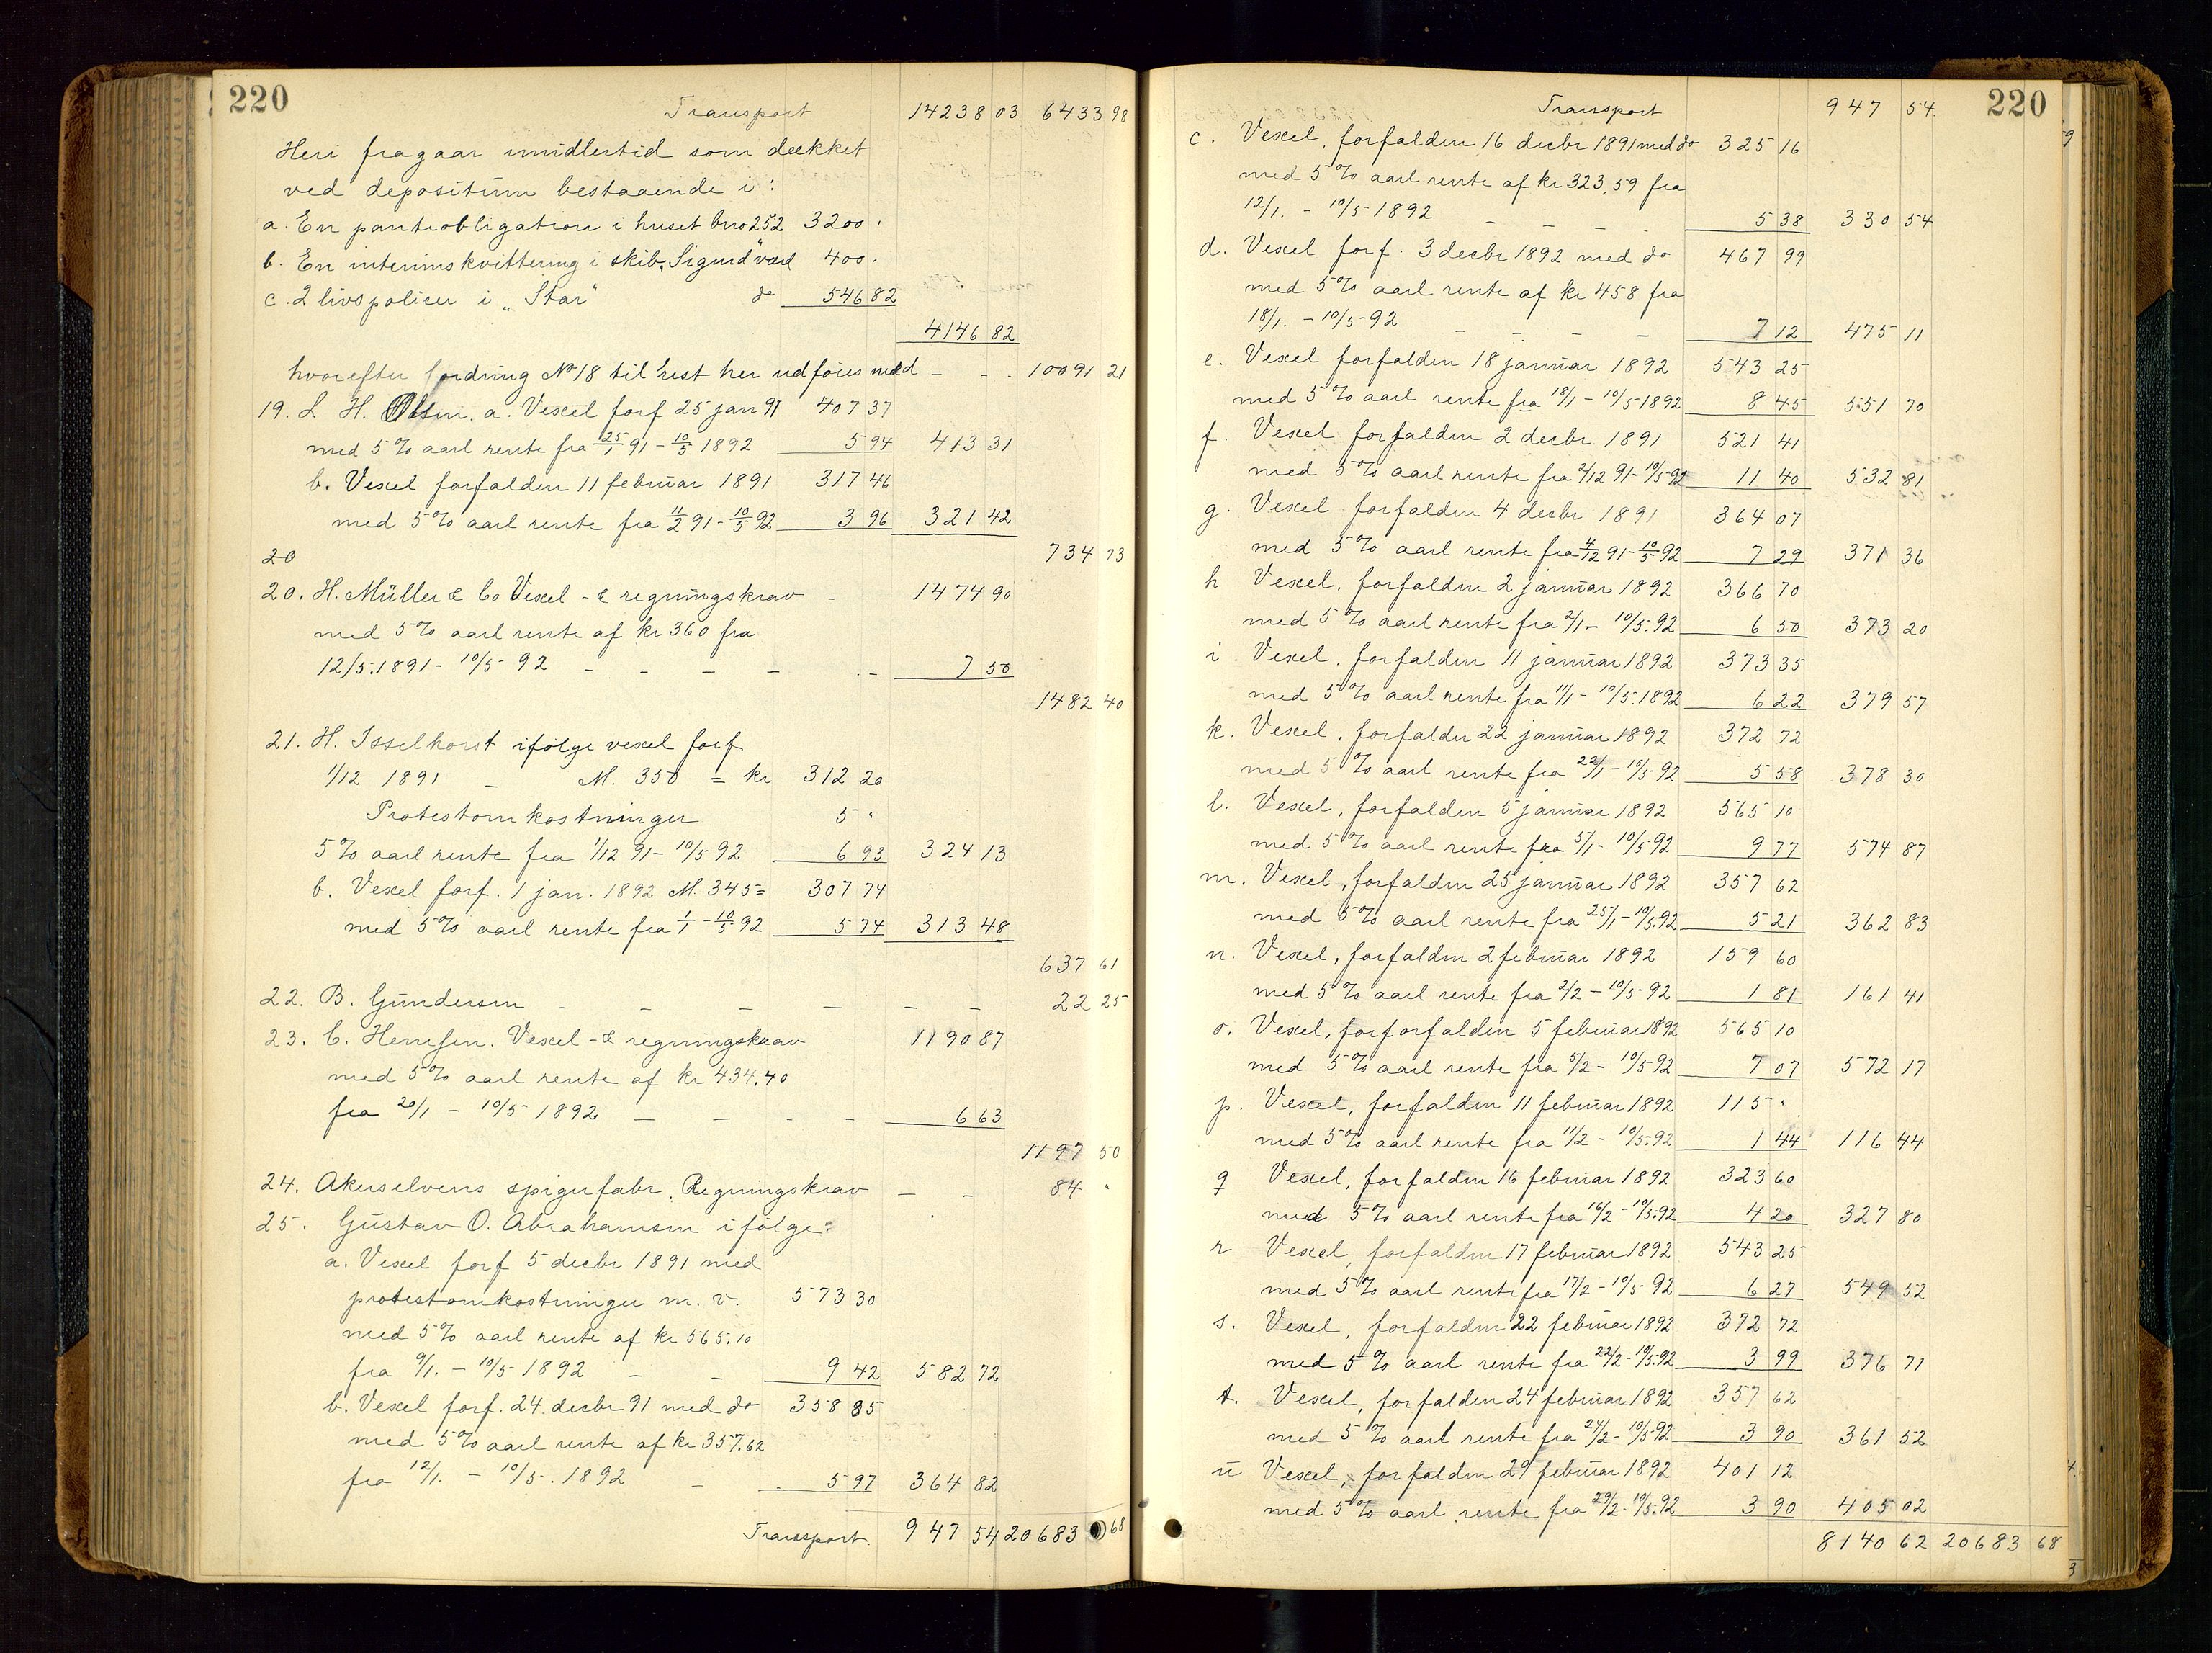 220
Transport 14238 03 6433 98
Heri fragaar imidlertid som dækket
ved depositum bestaaende i:
a. En panteobligation i huset bno 252 3200 .
b. En interimskvittering i skib. "Sigurd" værd 400 .
c. 2 livspolicer i "Star" do 546 82
4146 82
hvorefter fordring No 18 til rest her udføres med - - - 10091 21
19. L. H. Olsen. a. Vexel forf 25 jan 91 407 37
med 5% aarl rente fra 25/1 91 - 10/5 1892 5 94 413 31
b. Vexel forfalden 11 februar 1891 317 46
med 5% aarl rente fra 11/2 91 - 10/5 92 3 96 321 42
20 734 73
20. H. Müller & Co Vexel - & regningskrav - 1474 90
med 5% aarl rente af kr 360 fra
12/5. 1891 - 10/5 - 92 - - - - - - 7 50
1482 40
21. H. Isselhorst ifølge vexel forf
1/12 1891 - M. 350 = kr 312 20
Protestomkostninger 5 "
5% aarl rente fra 1/12 91 - 10/5 92 6 93 324 13
b. Vexel forf. 1 jan. 1892 M. 345 = 307 74
med 5% aarl rente fra 1/1 - 10/5 92 5 74 313 48
637 61
22. B. Gundersen - - - - - - 22 25
23. C. Hemsen. Vexel - & regningskrav 1190 87
med 5% aarl rente af kr 434,40
fra 20/1 - 10/5 1892 - - - - 6 63
1197 50
24. Akerselvens spigerfabr. Regningskrav - - 84 "
25. Gustav O. Abrahamsen ifølge:
a. Vexel forf 5 decbr 1891 med
protestomkostninger m. v. 573 30
med 5% aarl rente af kr 565.10
fra 9/1. - 10/5 1892 - - 9 42 582 72
b. Vexel forf. 24. decbr 91 med do 358 85
med 5% aarl rente af kr 357.62
fra 12/1. - 10/5. 1892 - 5 97 364 82
Transport. 947 54 20683 68
Transport 947 54 220
c. Vexel, forfalden 16 decbr 1891 med do 325 16
med 5% aarl rente af kr 323,59 fra
12/1. - 10/5 1892 - - - - 5 38 330 54
d. Vexel forf. 3 decbr 1892 med do 467 99
med 5% aarl rente af kr 458 fra
18/1. - 10/5 - 92 - - - - 7 12 475 11
e. Vexel forfalden 18 januar 1892 543 25
med 5% aarl rente fra 18/1 - 10/5 1892 8 45 551 70
f. Vexel forfalden 2 decbr 1891 521 41
med 5% aarl rente fra 2/12 91 - 10/5 92 11 40 532 81
g. Vexel forfalden 4 decbr 1891 364 07
med 5% aarl rente fra 4/12 91 - 10/5 92 7 29 371 36
h Vexel, forfalden 2 januar 1892 366 70
med 5% aarl rente fra 2/1 - 10/5. 92 6 50 373 20
i. Vexel, forfalden 11 januar 1892 373 35
med 5% aarl rente fra 11/1 - 10/5. 1892 6 22 379 57
k. Vexel, forfalden 22 januar 1892 372 72
med 5% aarl rente fra 22/1 - 10/5 - 92 5 58 378 30
l. Vexel, forfalden 5 januar 1892 565 10
med 5% aarl rente fra 5/1 - 10/5 - 92 9 77 574 87
m. Vexel, forfalden 25 januar 1892 357 62
med 5% aarl rente fra 25/1 - 10/5. 92 5 21 362 83
n. Vexel, forfalden 2 februar 1892 159 60
med 5% aarl rente fra 2/2 - 10/5 - 92 1 81 161 41
o. Vexel, forforfalden 5 februar 1892 565 10
med 5% aarl rente fra 5/2 - 10/5 92 7 07 572 17
p. Vexel, forfalden 11 februar 1892 115 "
med 5% aarl rente fra 11/2 - 10/5. 92 1 44 116 44
q Vexel, forfalden 16 februar 1892 323 60
med 5% aarl rente fra 16/2 - 10/5. 92 4 20 327 80
r Vexel, forfalden 17 februar 1892 543 25
med 5% aarl rente fra 17/2 - 10/5 - 92 6 27 549 52
s. Vexel, forfalden 22 februar 1892 372 72
med 5% aarl rente fra 22/2 - 10/5. 92 3 99 376 71
t. Vexel, forfalden 24 februar 1892 357 62
med 5% aarl rente fra 24/2 - 10/5 - 92 3 90 361 52
u Vexel, forfalden 29 februar 1892 401 12
med 5% aarl rente fra 29/2 - 10/5. 92 3 90 405 02
8140 62 20683 68